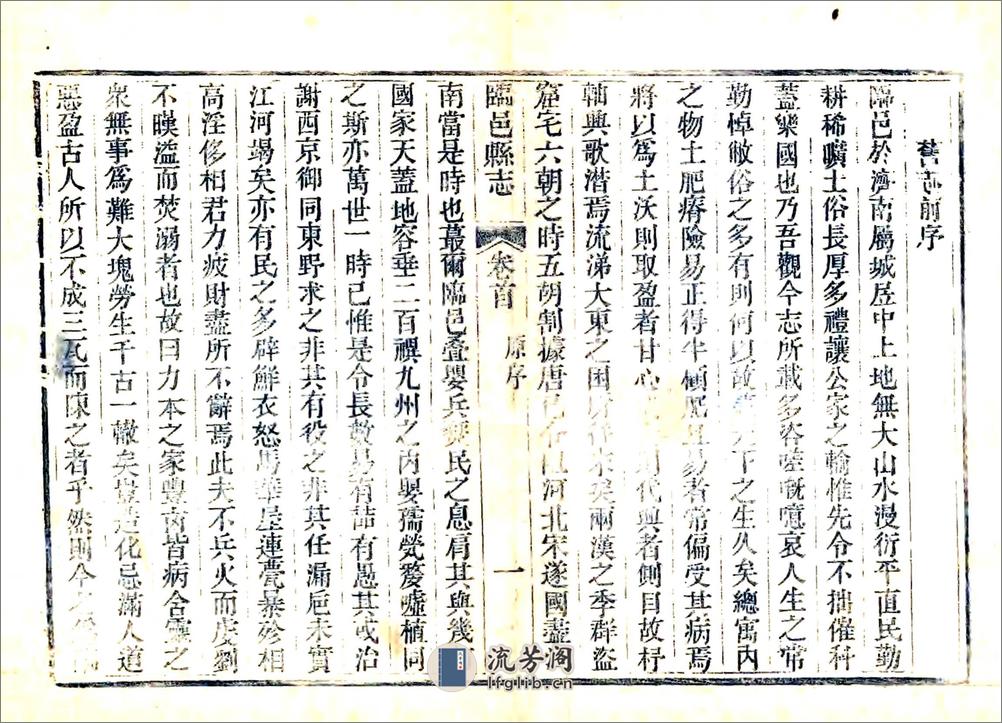 舊志前序
臨邑於濟南屬城居中上地無大山水漫衍平直民勤
耕稀曠土俗長厚多禮讓公家之輸惟先令不拙催科
蓋樂國也乃吾觀今志所載多咨嗟嘅噫哀人生之常
勤悼敝俗之多有則何以故 下之生久矣總寓內
之物土肥瘠險易正得半植肥且易者常偏受其病焉
將以爲土沃則取盈者甘心 代興者側目故杼
軸興歌潸焉流涕大東之困 來矣兩漢之季群盜
窟宅六朝之時五胡割據唐 河北宋遂國盡
臨邑縣志 卷首 原序 一
南當是時也蕞爾臨邑叠嬰兵 民之息肩其與幾
國家天蓋地容垂二百禩九州之內嬰孺煢嫠嘘植同
之斯亦萬世一時已惟是令長數易有喆有愚其或治
謝西京御同東野求之非其有役之非其任漏巵未實
江河竭矣亦有民之多辟鮮衣怒馬華屋連甍暴殄相
高淫侈相君力疲財盡所不辭焉此夫不兵火而虔劉
不暵溢而焚溺者也故曰力本之家豐嗇皆病含靈之
衆無事爲難大塊勞生千古一轍矣豈造化忌滿人道
惡盈古人所以不成三瓦而陳之者乎然則今
流芳阁
lfglib.cn